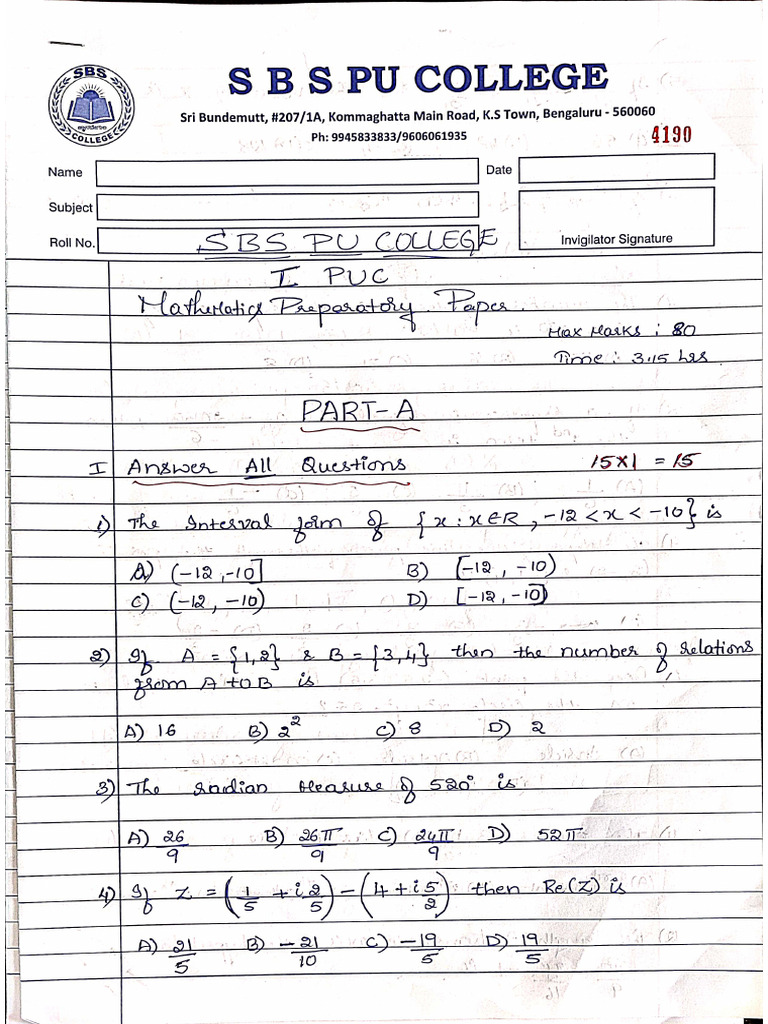 SBS
COLLEGE
S B S PU COLLEGE
Sri Bundemutt, #207/1A, Kommaghatta Main Road, K.S Town, Bengaluru - 560060
Ph: 9945833833/9606061935
4190
Name
Date
Subject
Roll No.
Invigilator Signature
SBS PU COLLEGE
I PUC
Mathematics Preparatory Paper.
Max Marks : 80
Time : 3.15 hrs
PART-A
I Answer All Questions 15×1 = 15
1) The Interval form of {x : x∈R, -12 < x < -10} is
A) (-12, -10] B) [-12, -10)
C) (-12, -10) D) [-12, -10]
2) If A = {1,2} & B = {3,4} then the number of relations
from A to B is
A) 16 B) 2² C) 8 D) 2
3) The radian Measure of 520° is
A) 26/9 B) 26π/9 C) 24π/9 D) 52π
4) If Z = (1/5 + i 2/5) - (4 + i 5/2) then Re(Z) is
A) 21/5 B) -21/10 C) -19/5 D) 19/5